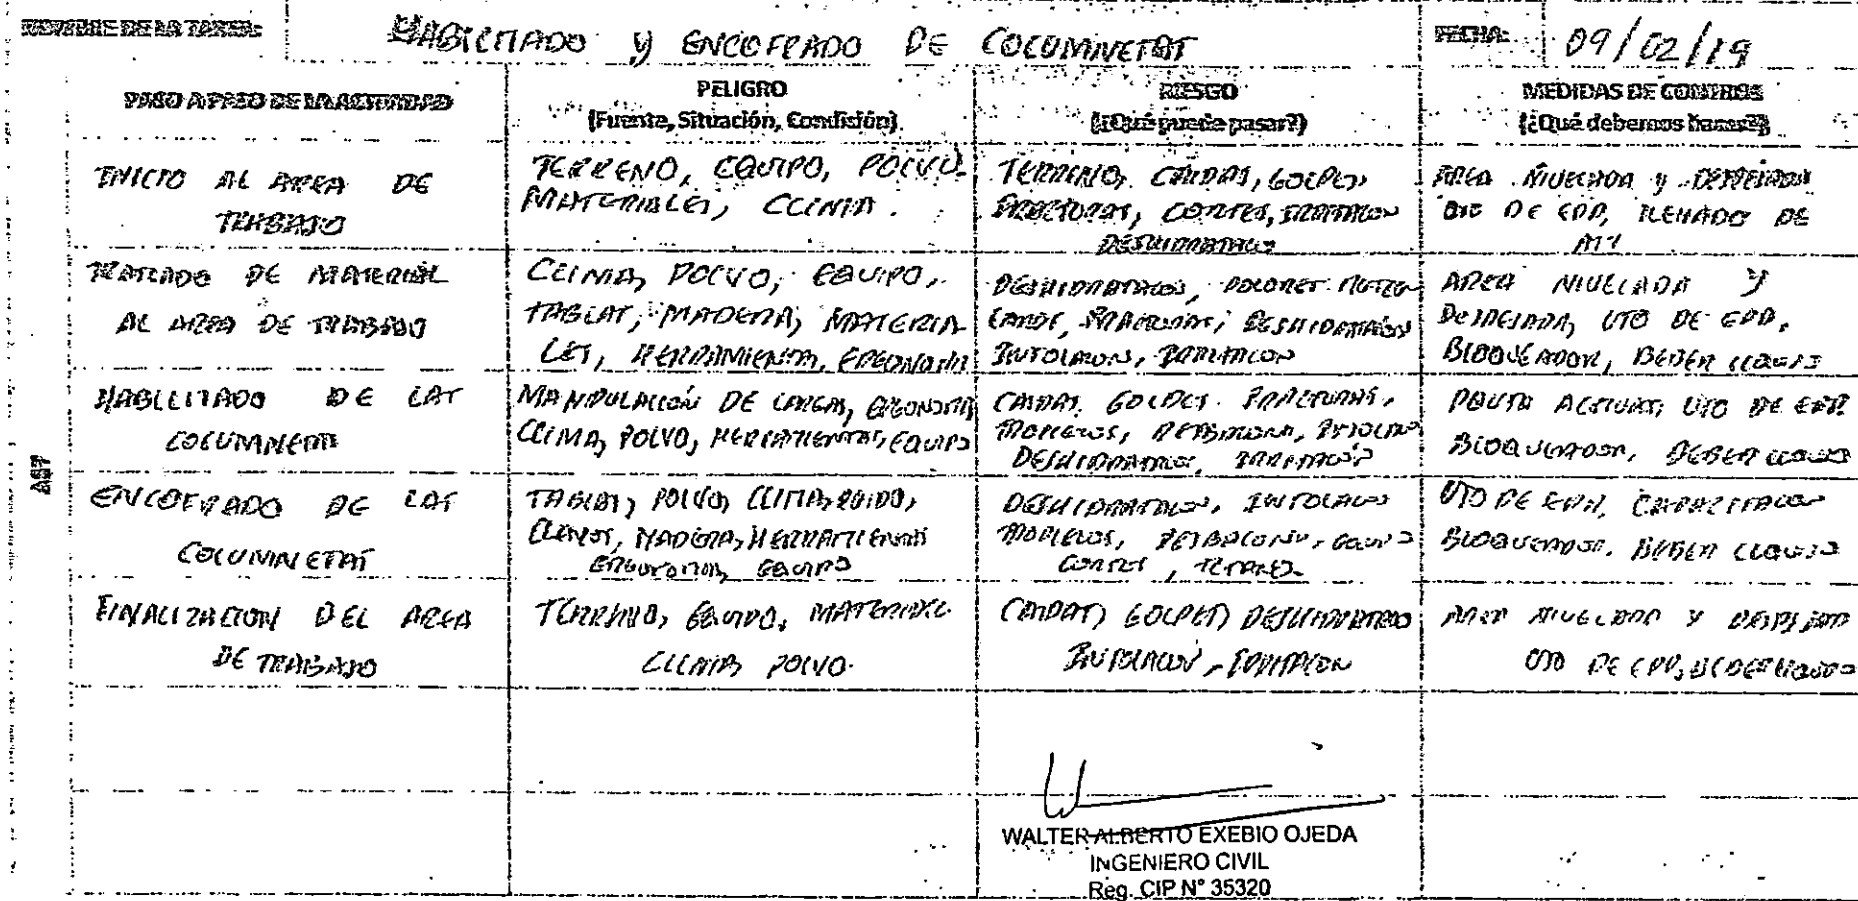 NOMBRE DE LA TAREA: HABILITADO y ENCOFRADO DE COLUMNETAS FECHA: 09/02/19
PASO A PASO DE LA ACTIVIDAD
PELIGRO
(Fuente, Situación, Condición)
RIESGO
(¿Qué puede pasar?)
MEDIDAS DE CONTROL
(¿Qué debemos hacer?)
INICIO AL AREA DE
TRABAJO
TERRENO, EQUIPO, POLVO
MATERIALES, CLIMA.
TERRENO, CAIDAS, GOLPES,
FRACTURAS, CORTES, IRRITACION
DESHIDRATACION
AREA NIVELADA y DESPEJADA
USO DE EPP, LLENADO DE
TRASLADO DE MATERIAL
AL AREA DE TRABAJO
CLIMA, POLVO, EQUIPO,
TABLAS, MADERA, MATERIA
LES, HERRAMIENTA, ERGONOMIA
DESHIDRATACION, DOLORES
FRACTURAS, DESHIDRATACION
INSOLACION, IRRITACION
AREA NIVELADA Y
DESPEJADA, USO DE EPP,
BLOQUEADOR, BEBER LIQUIDO
HABILITADO DE LAS
COLUMNETAS
MANIPULACIÓN DE CARGAS, ERGONOMIA
CLIMA, POLVO, HERRAMIENTAS, EQUIPO
CAIDAS, GOLPES, FRACTURAS,
DESHIDRATACION, IRRITACION
PAUSA ACTIVAS, USO DE EPP.
BLOQUEADOR, BEBER LIQUIDO
ENCOFRADO DE LAS
COLUMNETAS
TABLAS, POLVO, CLIMA, RUIDO,
CLAVOS, MADERA, HERRAMIENTAS
ERGONOMIA, EQUIPO
DESHIDRATACION, INSOLACION
CORTES, TETANOS
USO DE EPP, CAPACITACION
BLOQUEADOR, BEBER LIQUIDO
FINALIZACION DEL AREA
DE TRABAJO
TERRENO, EQUIPO, MATERIALES
CLIMA, POLVO.
CAIDAS, GOLPES, DESHIDRATACION
INSOLACION, IRRITACION
AREA NIVELADA Y DESPEJADA
USO DE EPP, BEBER LIQUIDO
WALTER ALBERTO EXEBIO OJEDA
INGENIERO CIVIL
Reg. CIP N° 35320